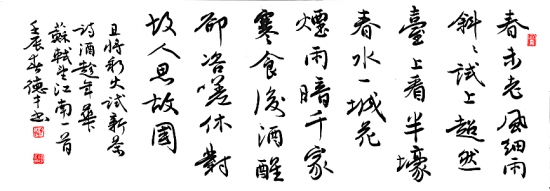 春未老風細雨
斜〻試上超然
臺上看半壕
春水一城花
煙雨暗千家
寒食後酒醒
卻咨嗟休對
故人思故國
且將新火試新茶
詩酒趁年華
蘇軾望江南一首
壬辰春德才書